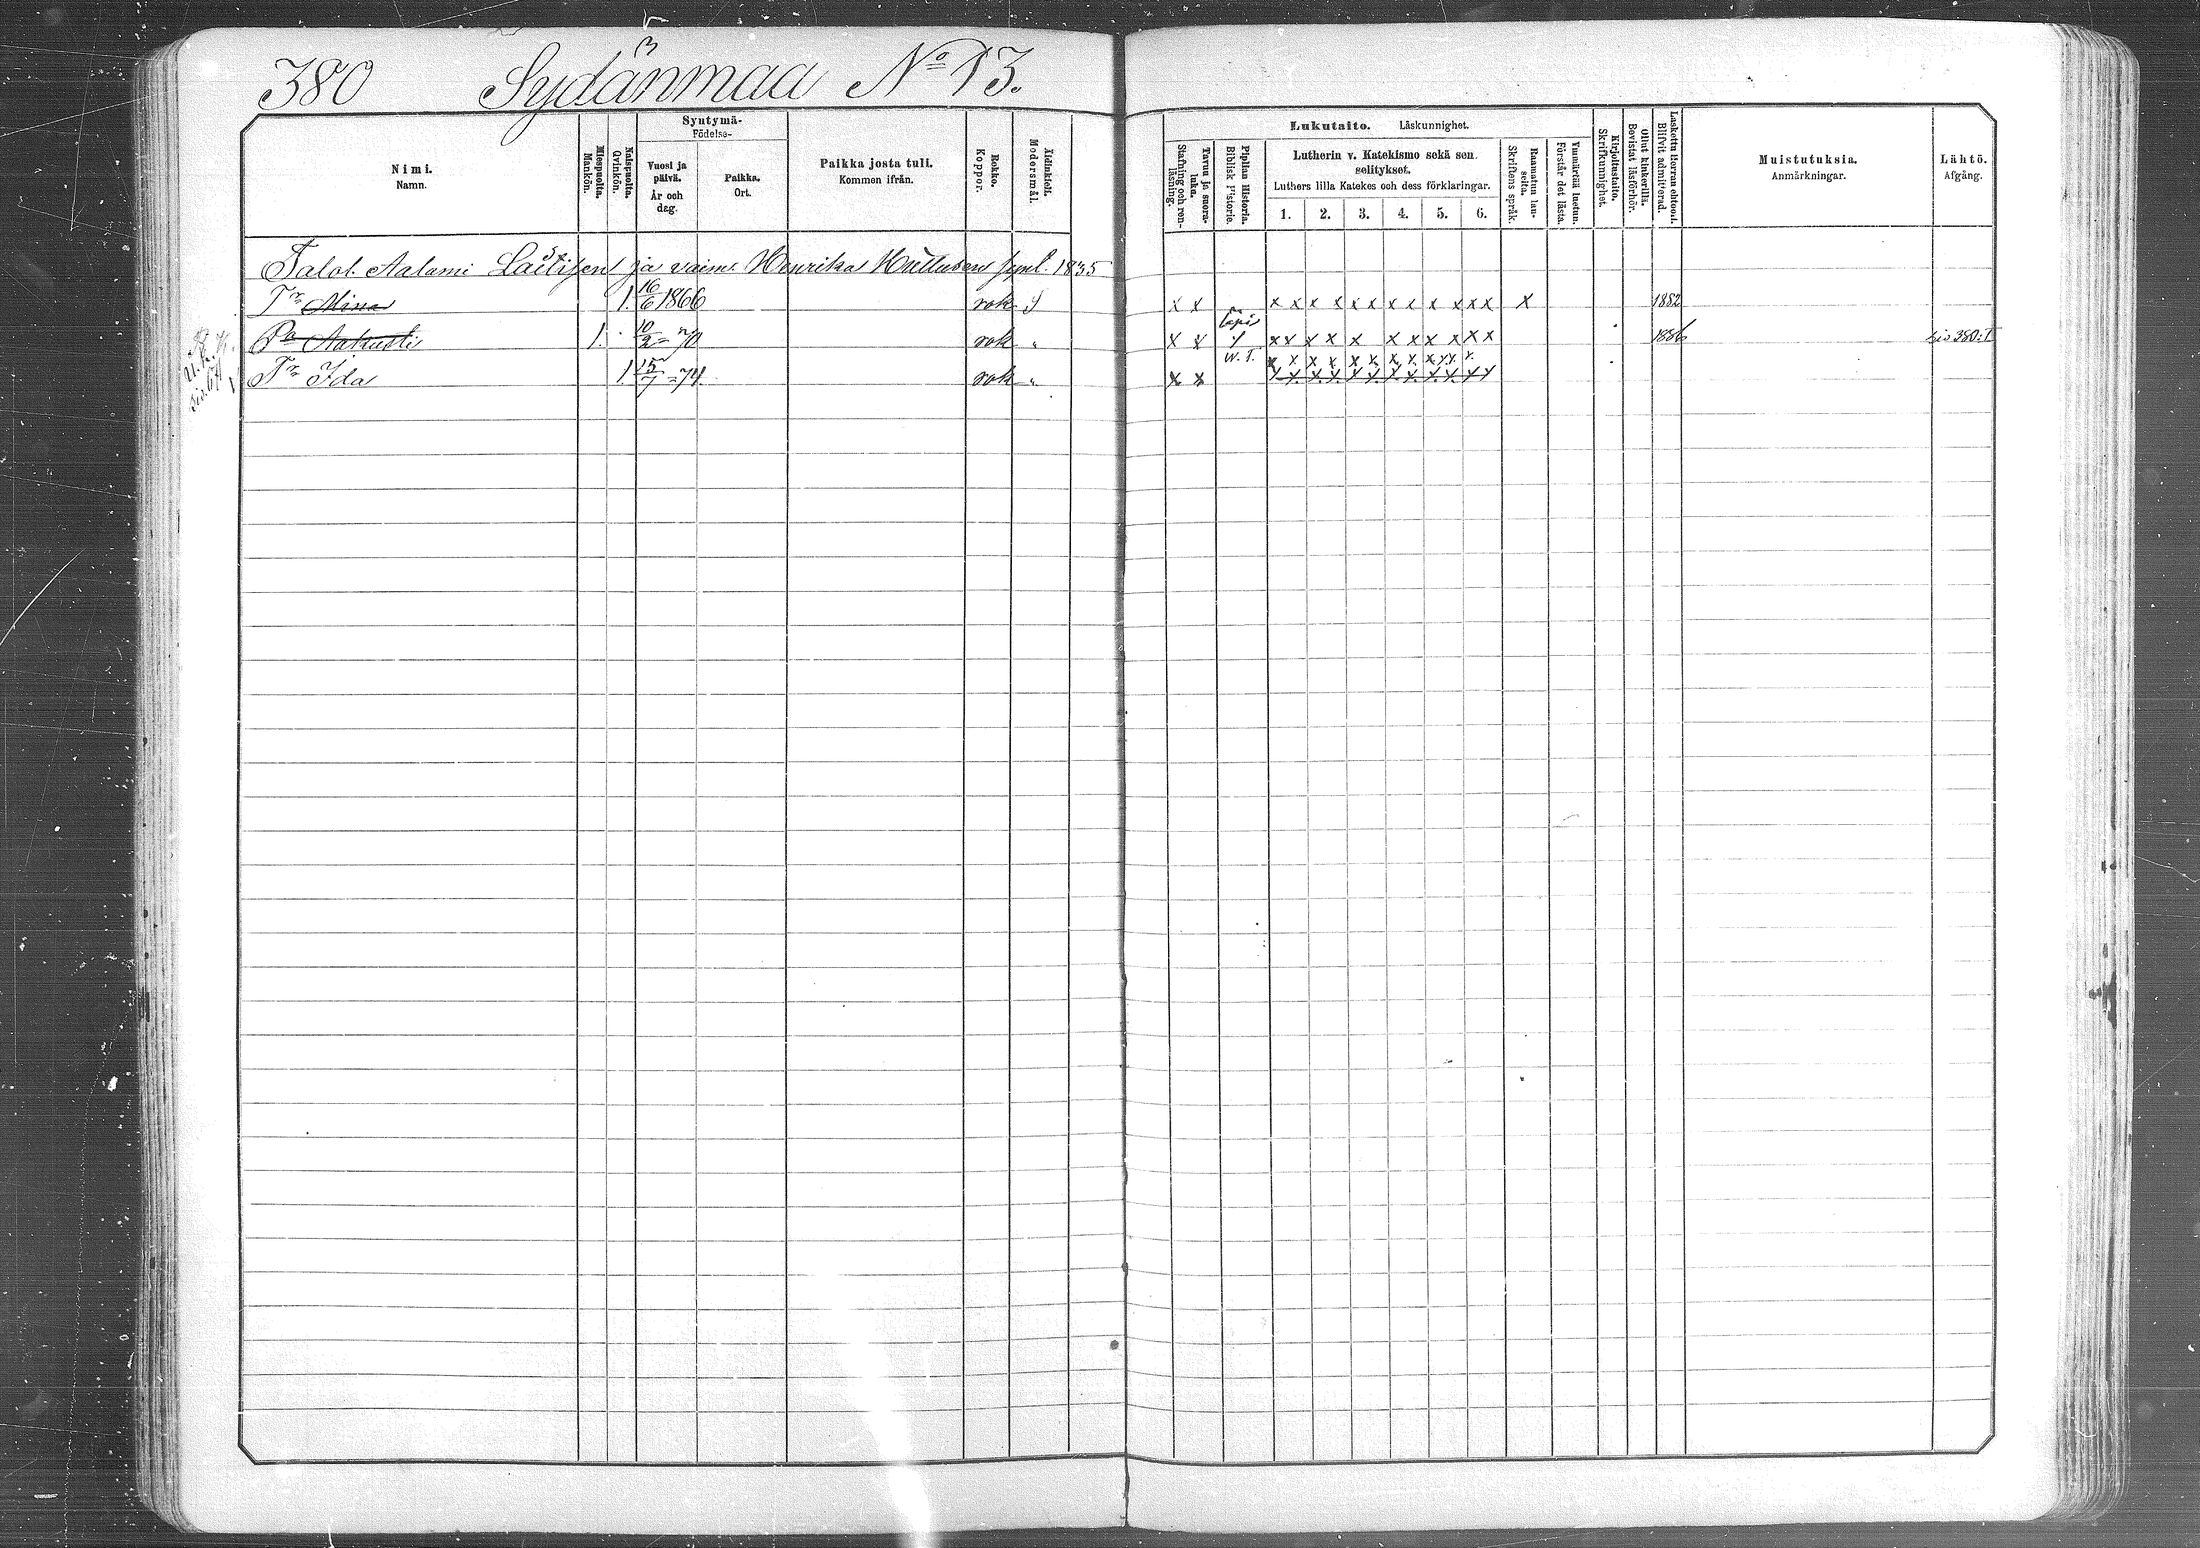 380 Sydänmaa No 13.
Nimi.
Namn.
Miespuolta.
Mankön.
Naispuolta.
Qvinkön.
Syntymä-
Födelse-
Vuosi ja
päivä.
År och
dag.
Paikka.
Ort.
Paikka josta tuli.
Kommen ifrån.
Rokko.
Koppor.
Äidinkieli.
Modersmål.
Lukutaito. Läskunnighet.
Tavuu ja suora-
luku.
Stafning och ren-
läsning.
Piplian Historia.
Biblisk Historie.
Lutherin v. Katekismo sekä sen
selitykset.
Luthers lilla Katekes och dess förklaringar.
1. 2. 3. 4. 5. 6.
Raamatun lau-
seita.
Skriftens språk.
Ymmärtää luetun.
Förstår det lästa.
Kirjoitustaito.
Skrifkunnighet.
Ollut kinkerillä.
Bevistat läsförhör.
Laskettu Herran ehtool.
Blifvit admitterad.
Muistutuksia.
Anmärkningar.
Lähtö.
Afgång.
Talol. Aalami Laitisen ja vaim. Henrika Hullusen synt. 1835
Tr Miina 1. 16/6 1866 rok. x x x x x x x x x x x x x x x x x 1882
Pa Aakusti 1. 10/2 = 70 rok " x x x x x x x x x x x x x x 1886 siv 380: I
Tr Ida 1 15/7 = 74. rok " x x W. T. x x x x x x x x x x x x
siv. 64